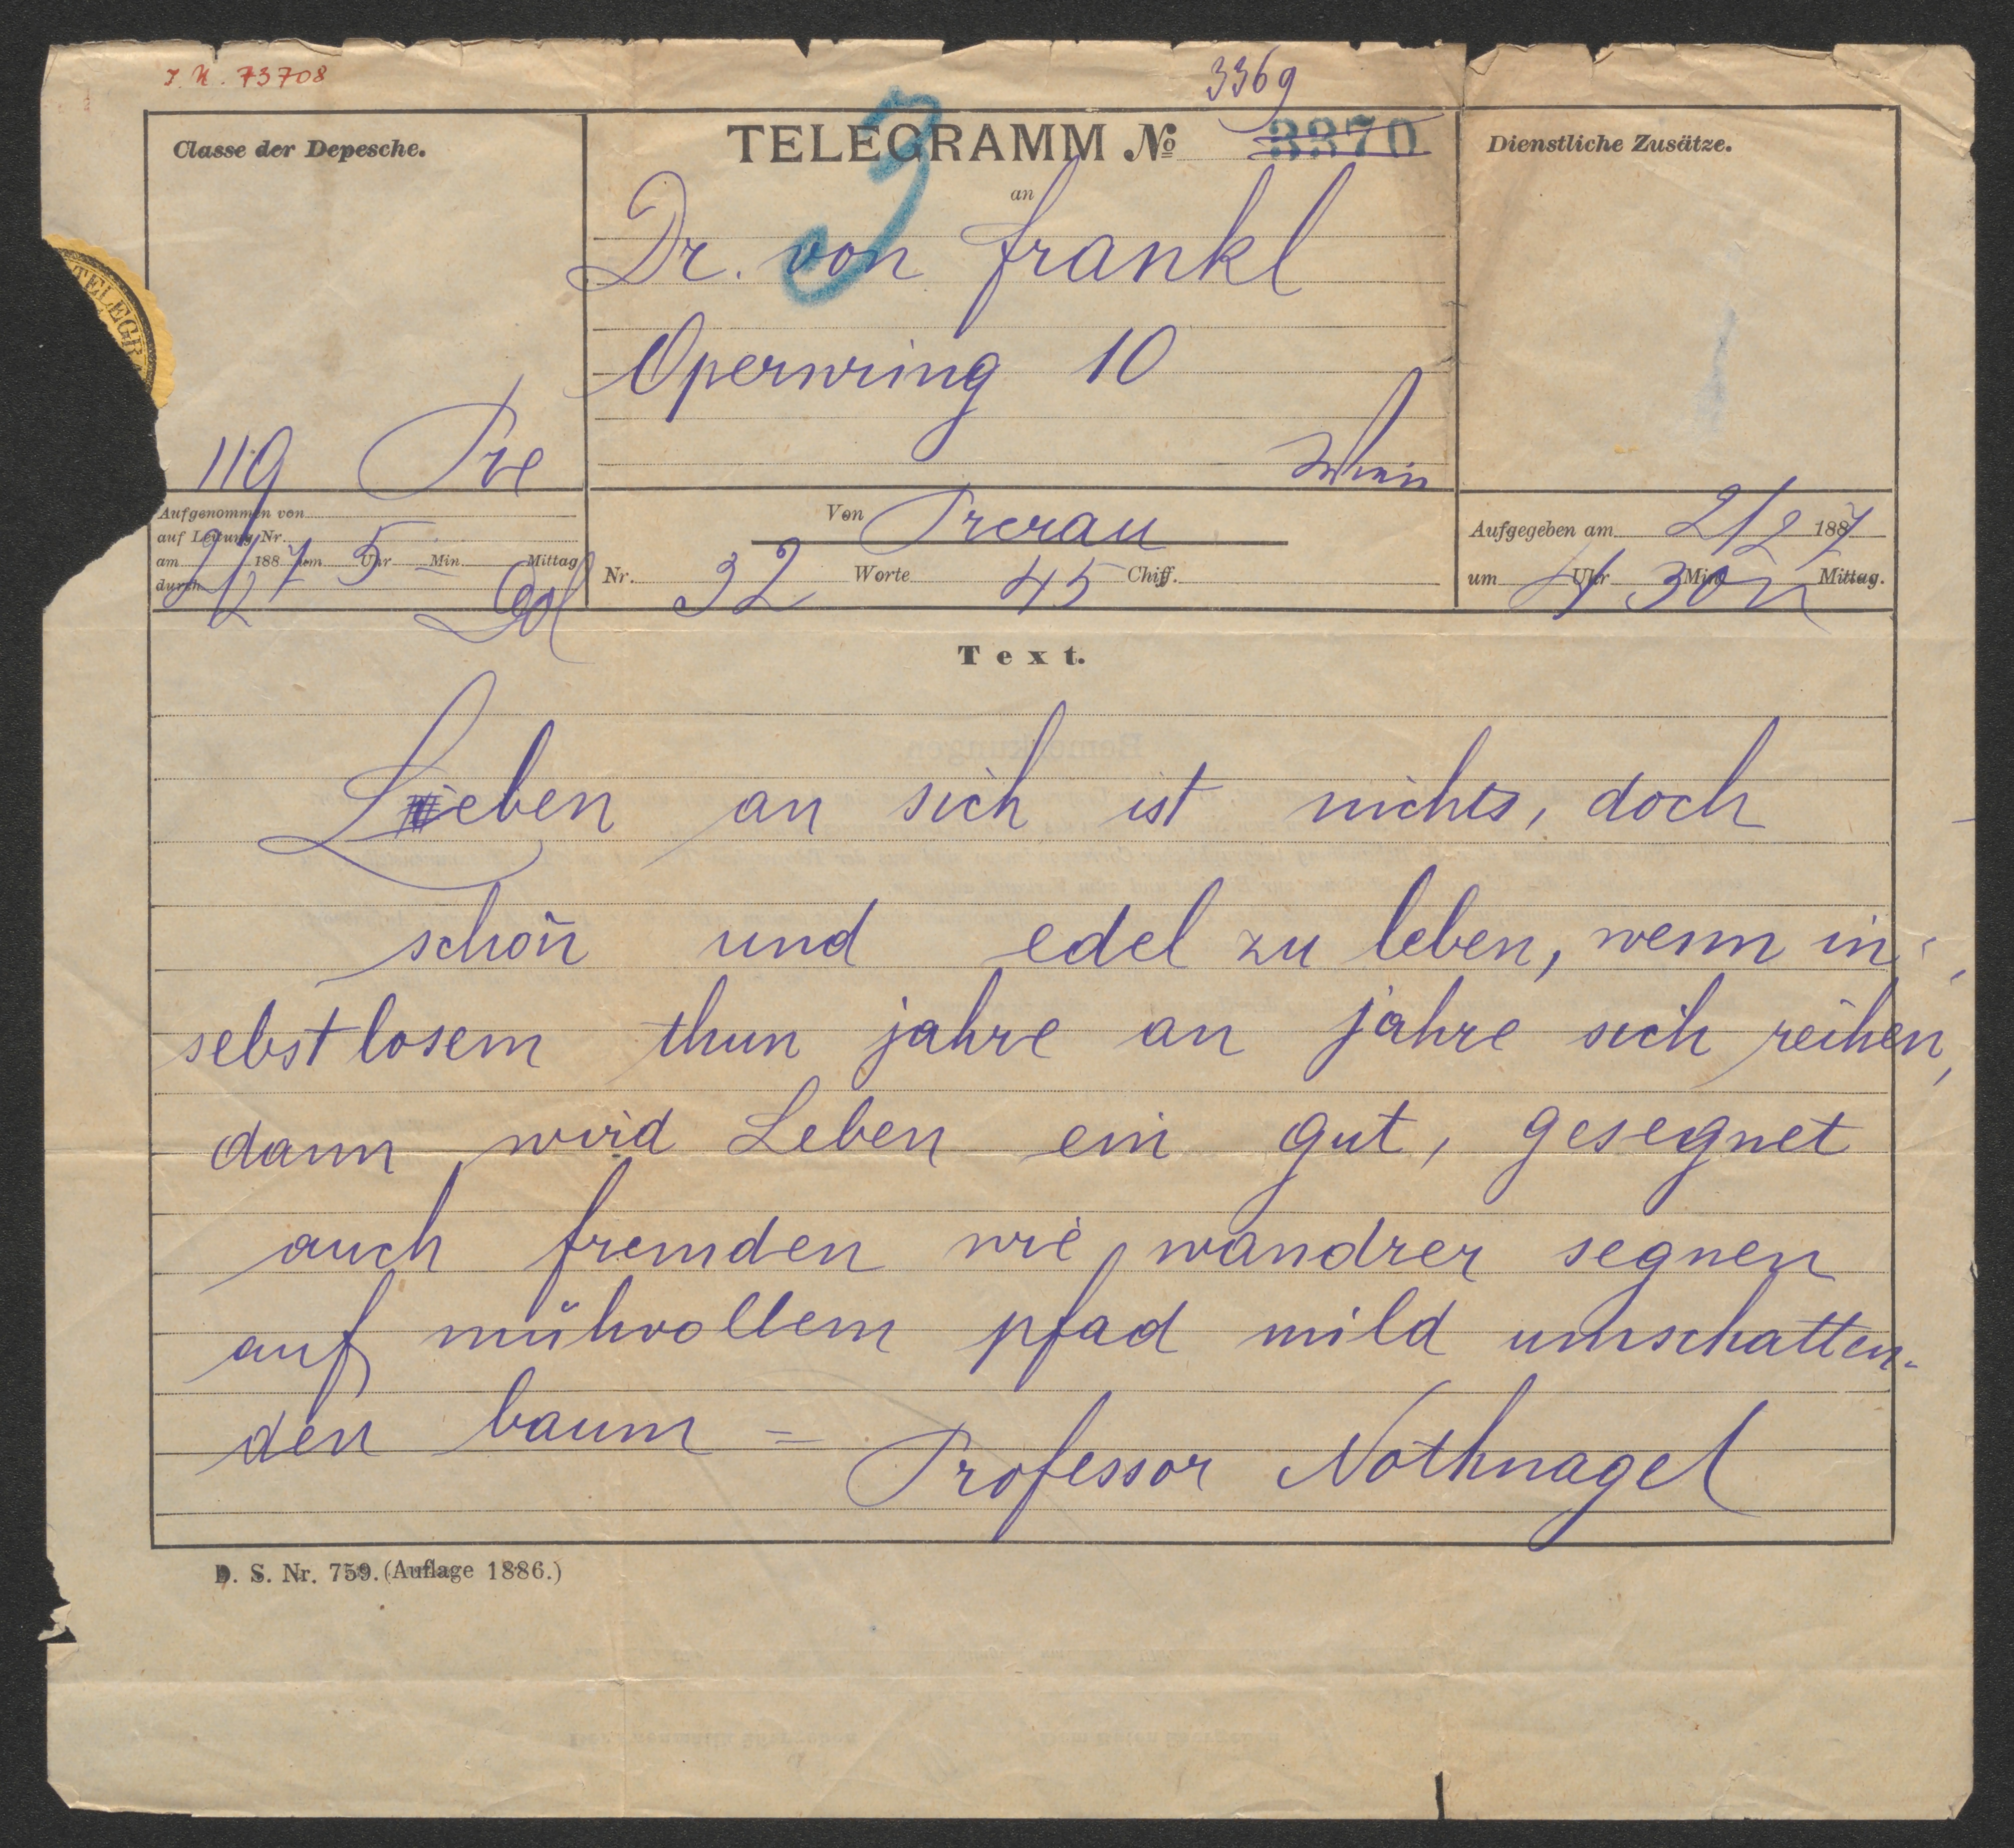 J. N. 73708
3369
Classe der Depesche.
TELEGRAMM No 3370
Dienstliche Zusätze.
3
an
Dr. von frankl
Opernring 10
Wien
TELEGR
119 Pre
Aufgenommen von
auf Leitung Nr.
am 2/2 1887 um 5 Uhr Min. Mittag
durch
Von Prerau
Nr. 32 Worte 45 Chiff.
Aufgegeben am 2/2 1887
um 4 Uhr 30 Min. Mittag.
Text.
Lieben an sich ist nichts, doch
schön und edel zu leben, wenn in
sebstlosem thun jahre an jahre sich reihen,
dann wird Leben ein gut, gesegnet
auch fremden wie wandrer segnen
auf mühvollem pfad mild umschatten-
den baum = Professor Nothnagel
D. S. Nr. 759. (Auflage 1886.)